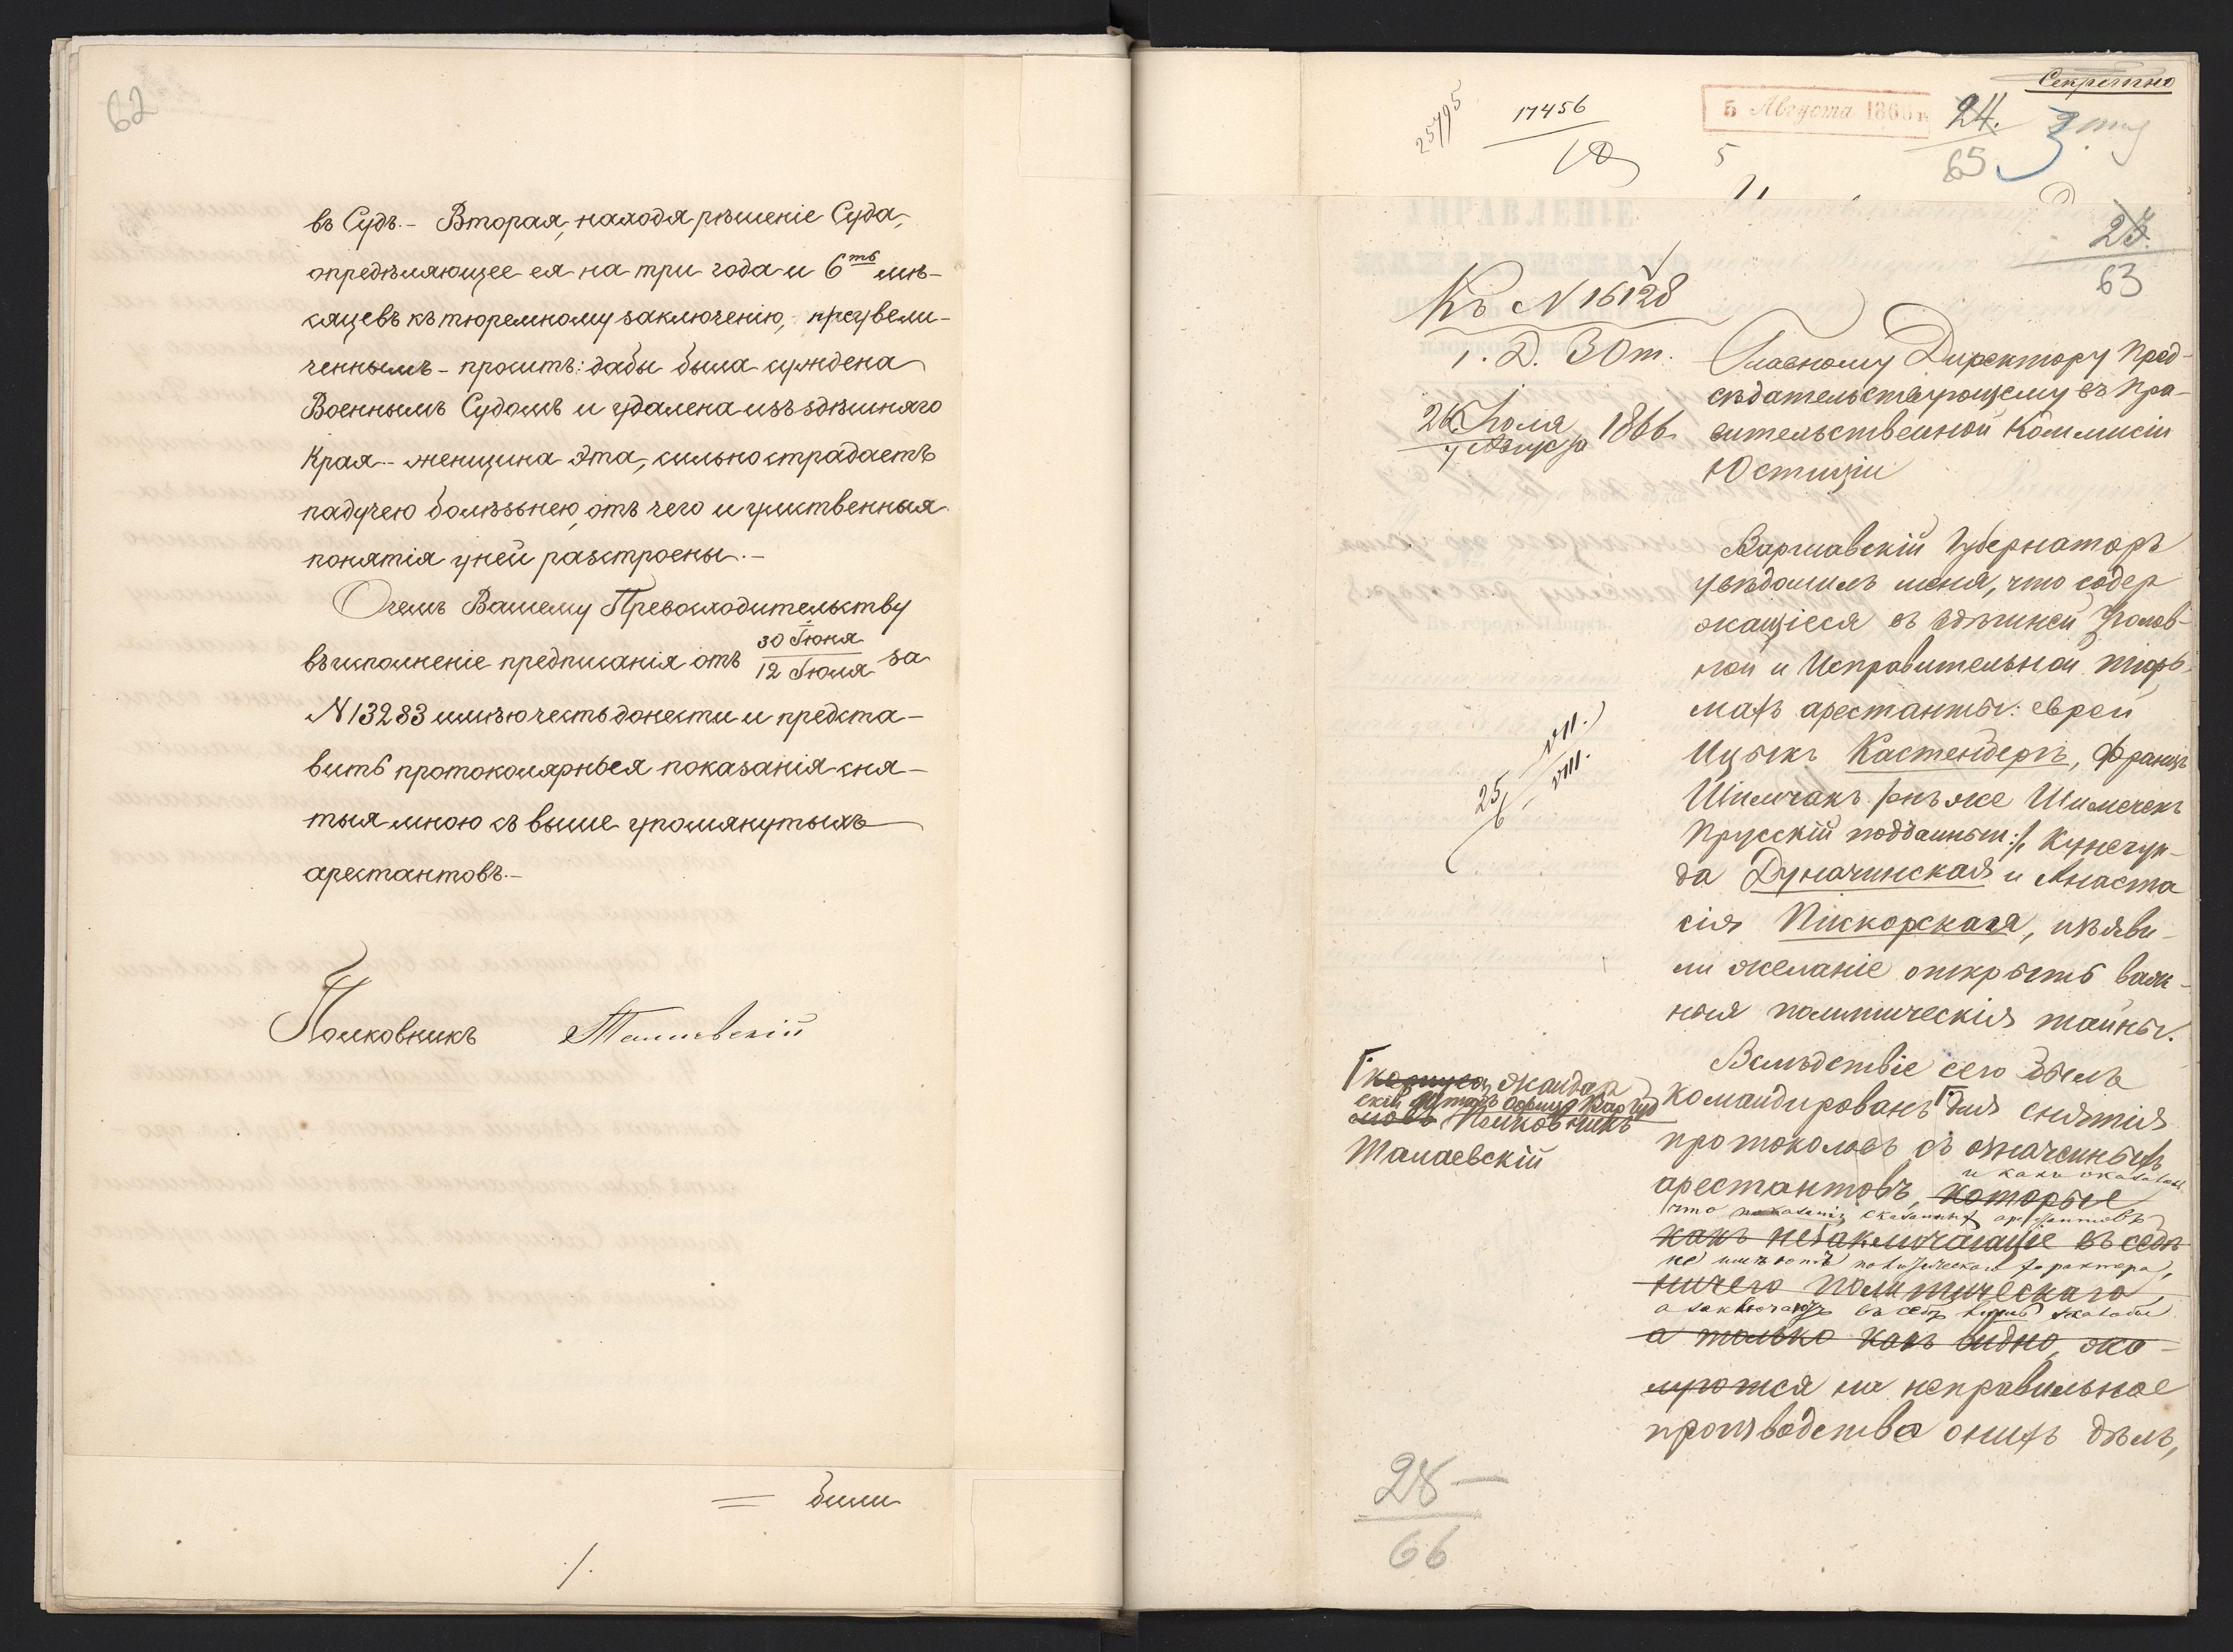 62
въ Судъ.- Вторая, находя рѣшеніе Суда,
опредѣляющее ея на три года и 6ть мѣ-
сяцевъ къ тюремному заключенію, преувели-
ченнымъ - проситъ: дабы была суждена
Военнымъ Судомъ и удалена изъ здѣшняго
Края.- женщина эта, сильно страдаетъ
падучею болѣзьнею, отъ чего и умственныя
понятія у ней разстроены.-
О чемъ Вашему Превосходительству
въ исполненіе предписанія отъ 30 Іюня / 12 Іюля за
N 13283 имѣю честь донести и предста-
вить протоколярныя показанія сня-
тыя мною съ выше упомянутыхъ
арестантовъ.-
Полковникъ
были
Секретно
25795
17456
5 Августа 1866 г.
24.
65
5
25.
63
Къ N 16128
1. Д. 3 От.
26 Іюля / 7 Августа 1866
Главному Директору Пред-
сѣдательствующему въ Пра-
вительственной Коммисіи
Юстиціи
Варшавскій Губернаторъ
увѣдомилъ меня, что содер
жащіеся въ здѣшней Уголов-
ной и Исправительной тюрь-
махъ арестанты: еврей
Ицыкъ Кастенбергъ, Францъ
Шимчакъ /онъ же Шимечекъ
Прусскій подданный:/, Кунегун-
да Дуначинская и Анаста
сія Пискорская, изъяви-
ли желаніе открыть важ-
ныя политическія тайны.
Вслѣдствіе сего былъ
командированъ Г для снятія
протоколовъ съ означенныхъ
арестантовъ, которые
и какъ оказалось
что показанія сказанныхъ арестантовъ
какъ незаключающіе въ себѣ
не имѣютъ политическаго характера,
ничего политическаго,
а заключаютъ въ себѣ жалобы
а только какъ видно, жа-
луются на неправильное
производство онихъ дѣлъ,
25 VII. / 6 VIII.
Г корпуса жандар
Полковникъ
28 -
66